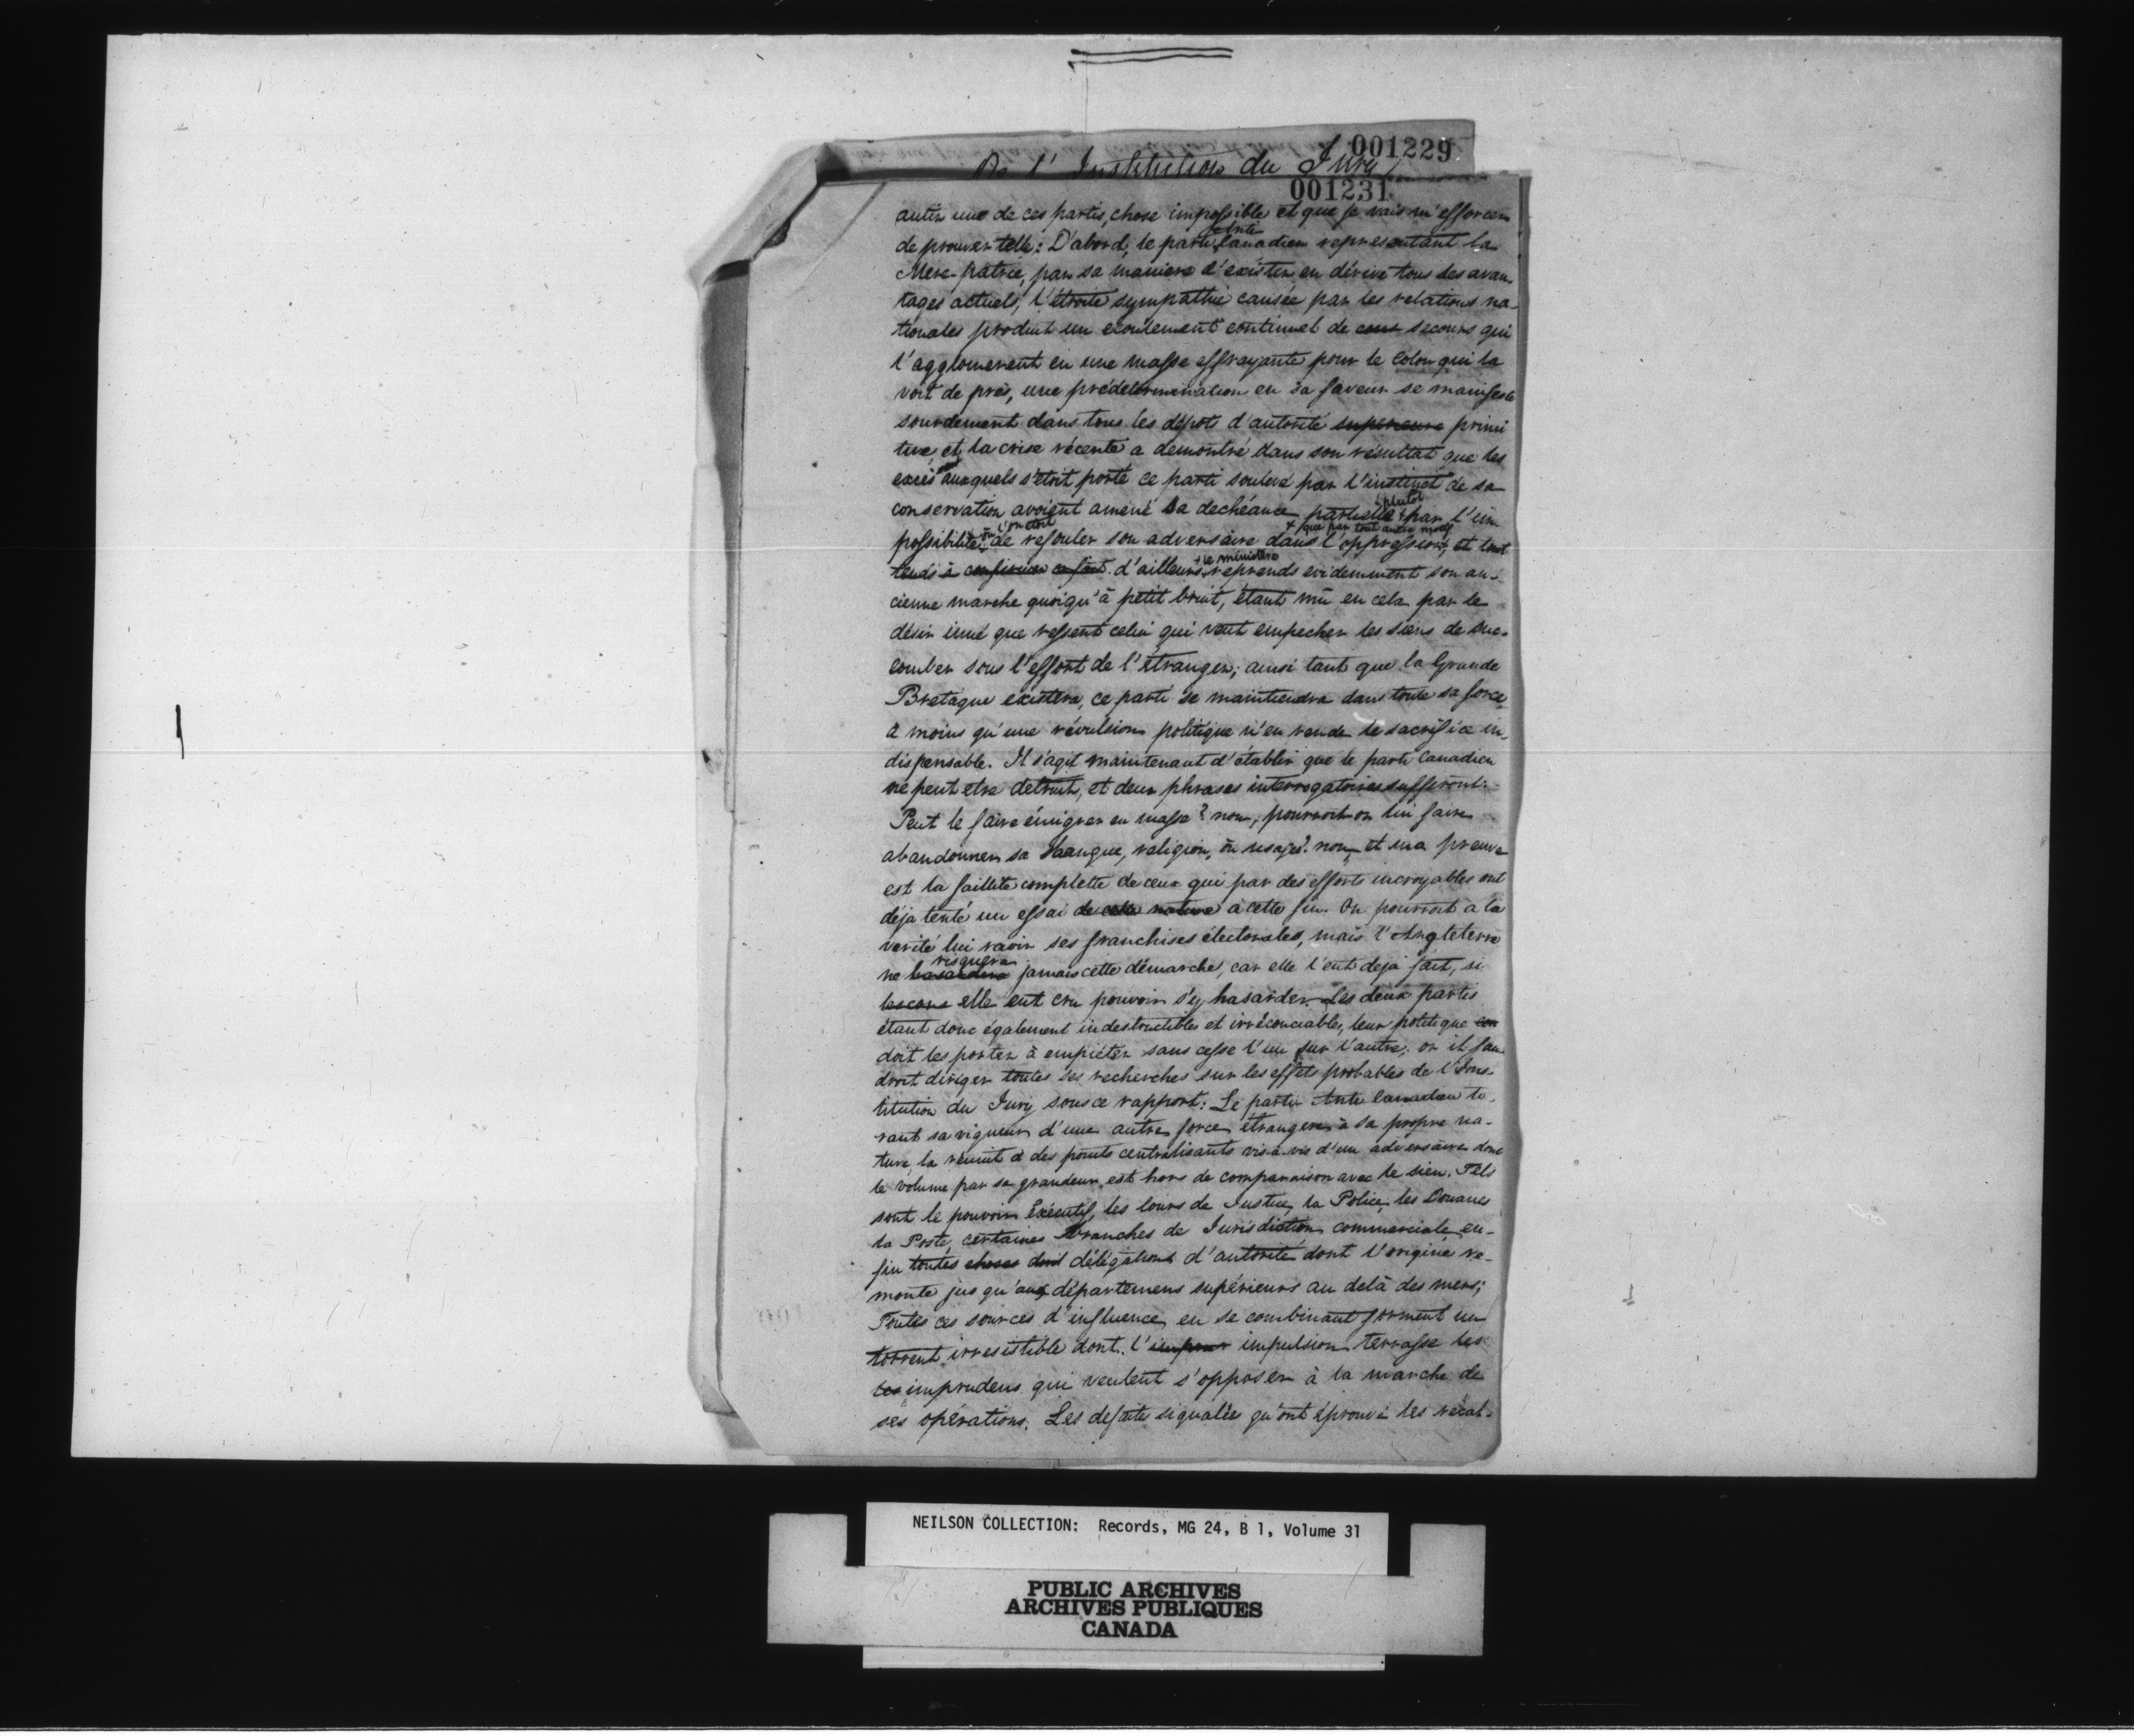 001229
De l'Institution du Jury
001231
de ces partis, chose impossible et que je vais m'efforcer
de prouver telle: D'abord, le parti Anti Canadien représentant la
Mère-patrie, par sa maniere d'exister en dérive tous les avan-
tages actuels; l'étroite sympathie causée par les relations na-
tionales produit un ecoulement continuel de secours qui
l'agglomerent en une masse effrayante pour le Colon qui la
voit de près, une prédetermination en sa faveur se manifeste
sourdement dans tous les dépots d'autorité superieure primi
tive, et la crise récente a demontré dans son résultat que les
excès auxquels s'étoit porté ce parti soulevé par l'instinct de sa
conservation avoient amené sa dechéance partielle plutot par l'im
possibilité où l'on étoit de refouler son adversaire dans l'oppression + que par tout autre motif, et tout
tends à confirmer d'ailleurs + le ministère reprends evidemment son an-
cienne marche quoiqu'à petit bruit, étant mû en cela par le
désir inné que ressent celui qui veut empecher les siens de suc-
comber sous l'effort de l'étranger; ainsi tant que la Grande
Bretagne existera, ce parti se maintiendra dans toute sa force,
à moins qu'une révulsion politique n'en rende le sacrifice in-
dispensable. Il s'agit maintenant d'établir que le parti Canadien
ne peut etre detruit, et deux phrases interrogatoires suffiront:
Peut le faire émigrer en masse? non; pourroit-on lui faire
abandonner sa langue, religion, ou usages? non, et ma preuve
est la faillite complette de ceux qui par des efforts incroyables ont
déja tenté un essai de cette nature à cette fin. On pourroit à la
verité lui ravir ses franchises électorales, mais l'Angleterre
ne hasardera risquera jamais cette démarche, car elle l'eut deja fait, si
elle eut cru pouvoir s'y hasarder. Les deux partis
étant donc également indestructibles et irréconciables, leur politique con
doit les porter à empiéter sans cesse l'un sur l'autre; or il fau
droit diriger toutes ses recherches sur les effets probables de l'Ins-
titution du Jury sous ce rapport: Le parti Anti Canadien ti-
rant sa vigueur d'une autre force étrangere à sa propre na-
ture, la réunit à des points centralisants vis-à-vis d'un adversaire dont
le volume par sa grandeur est hors de comparaison avec le sien. Tels
sont le pouvoir Exécutif, les Cours de Justice, la Police, les Douanes
la Poste, certaines branches de Jurisdiction commerciale, en-
fin toutes choses dont délégations d'autorité dont l'origine re-
monte jusqu'aux départemens supérieurs au delà des mers;
Toutes ces sources d'influence en se combinant forment un
torrent irresistible dont l'impulsion terrasse les
les imprudens qui veulent s'opposer à la marche de
ses opérations. Les defaites signalées qu'ont éprouvé les récal-
NEILSON COLLECTION: Records, MG 24, B 1, Volume 31
PUBLIC ARCHIVES
ARCHIVES PUBLIQUES
CANADA